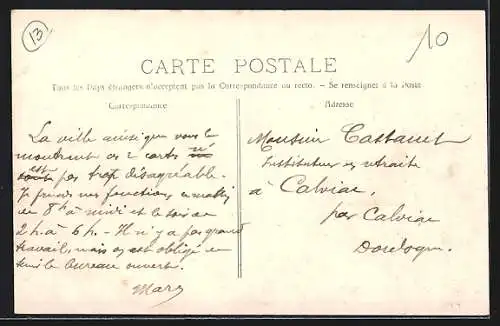 13
10
CARTE POSTALE
Tous les Pays étrangers n'acceptent pas la Correspondance au recto. - Se renseigner à la Poste
Correspondance
Adresse
La ville ainsi que vous le
montrent ces 2 cartes
est pas trop désagréable.
Je prends mes fonctions matin
de 8h à midi et le soir de
2h à 6h. - Il n'y a pas grand
travail, mais on est obligé de
tenir le bureau ouvert.
Marg
Monsieur Castanet
Instituteur en retraite
à Calviac,
par Calviac
Dordogne.